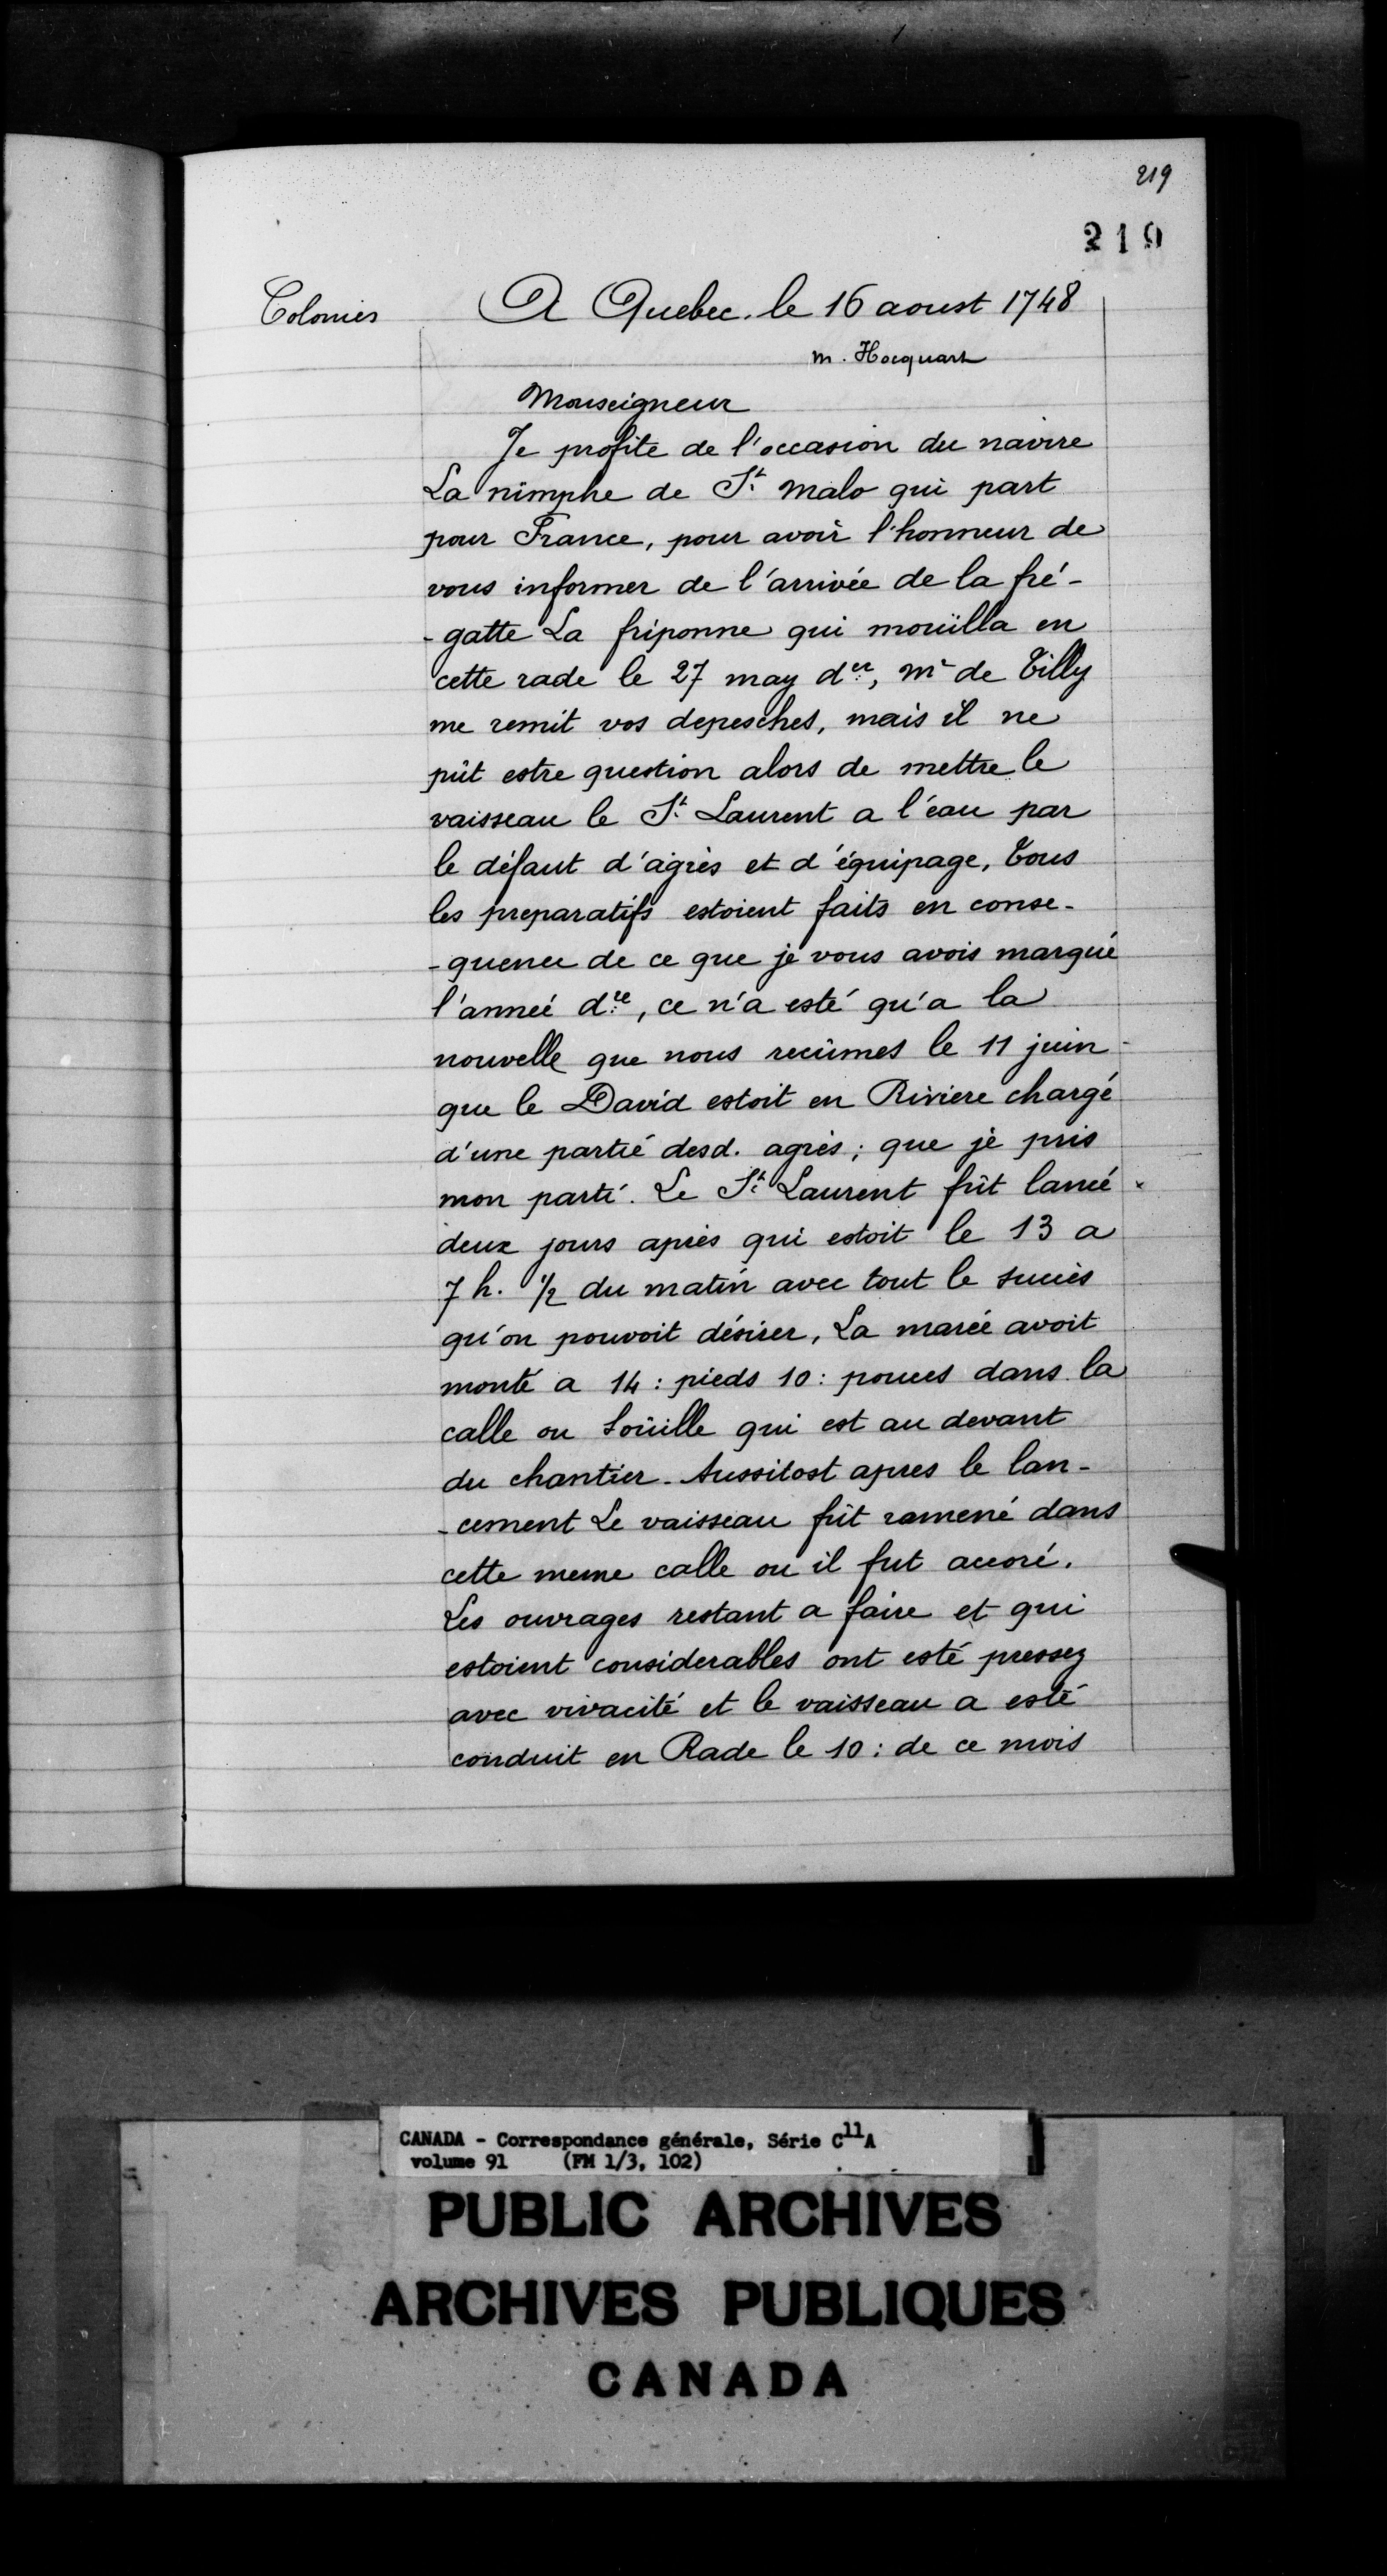 219
219
Colonies
A Quebec. le 16 aoust 1748
m. Hocquart
Monseigneur
Je profite de l'occasion du navire
La nimphe de St. malo qui part
pour France, pour avoir l'honneur de
vous informer de l'arrivée de la fré-
-gatte La friponne qui moüilla en
cette rade le 27 may der., mr de Tilly
me remit vos depesches, mais il ne
pût estre question alors de mettre le
vaisseau le St. Laurent a l'éau par
le défaut d'agrès et d'équipage, Tous
les preparatifs estoient faits en conse-
-quence de ce que je vous avois marqué
l'année dre., ce n'a esté qu'a la
nouvelle que nous reçûmes le 11 juin
que le David estoit en Riviere chargé
d'une partié desd. agrès; que je pris
mon parti. Le St. Laurent fût lancé x
deux jours après qui estoit le 13 a
7 h. 1/2 du matin avec tout le succès
qu'on pouvoit désirer, La marée avoit
monté a 14: pieds 10: pouces dans la
calle ou Soüille qui est au devant
du chantier. Aussitost apres le lan-
-cement Le vaisseau fût ramené dans
cette meme calle ou il fut accoré.
Les ouvrages restant a faire et qui
estoient considerables ont esté pressez
avec vivacité et le vaisseau a esté
conduit en Rade le 10: de ce mois
CANADA - Correspondance générale, Série C11A
volume 91 (FM 1/3, 102)
PUBLIC ARCHIVES
ARCHIVES PUBLIQUES
CANADA